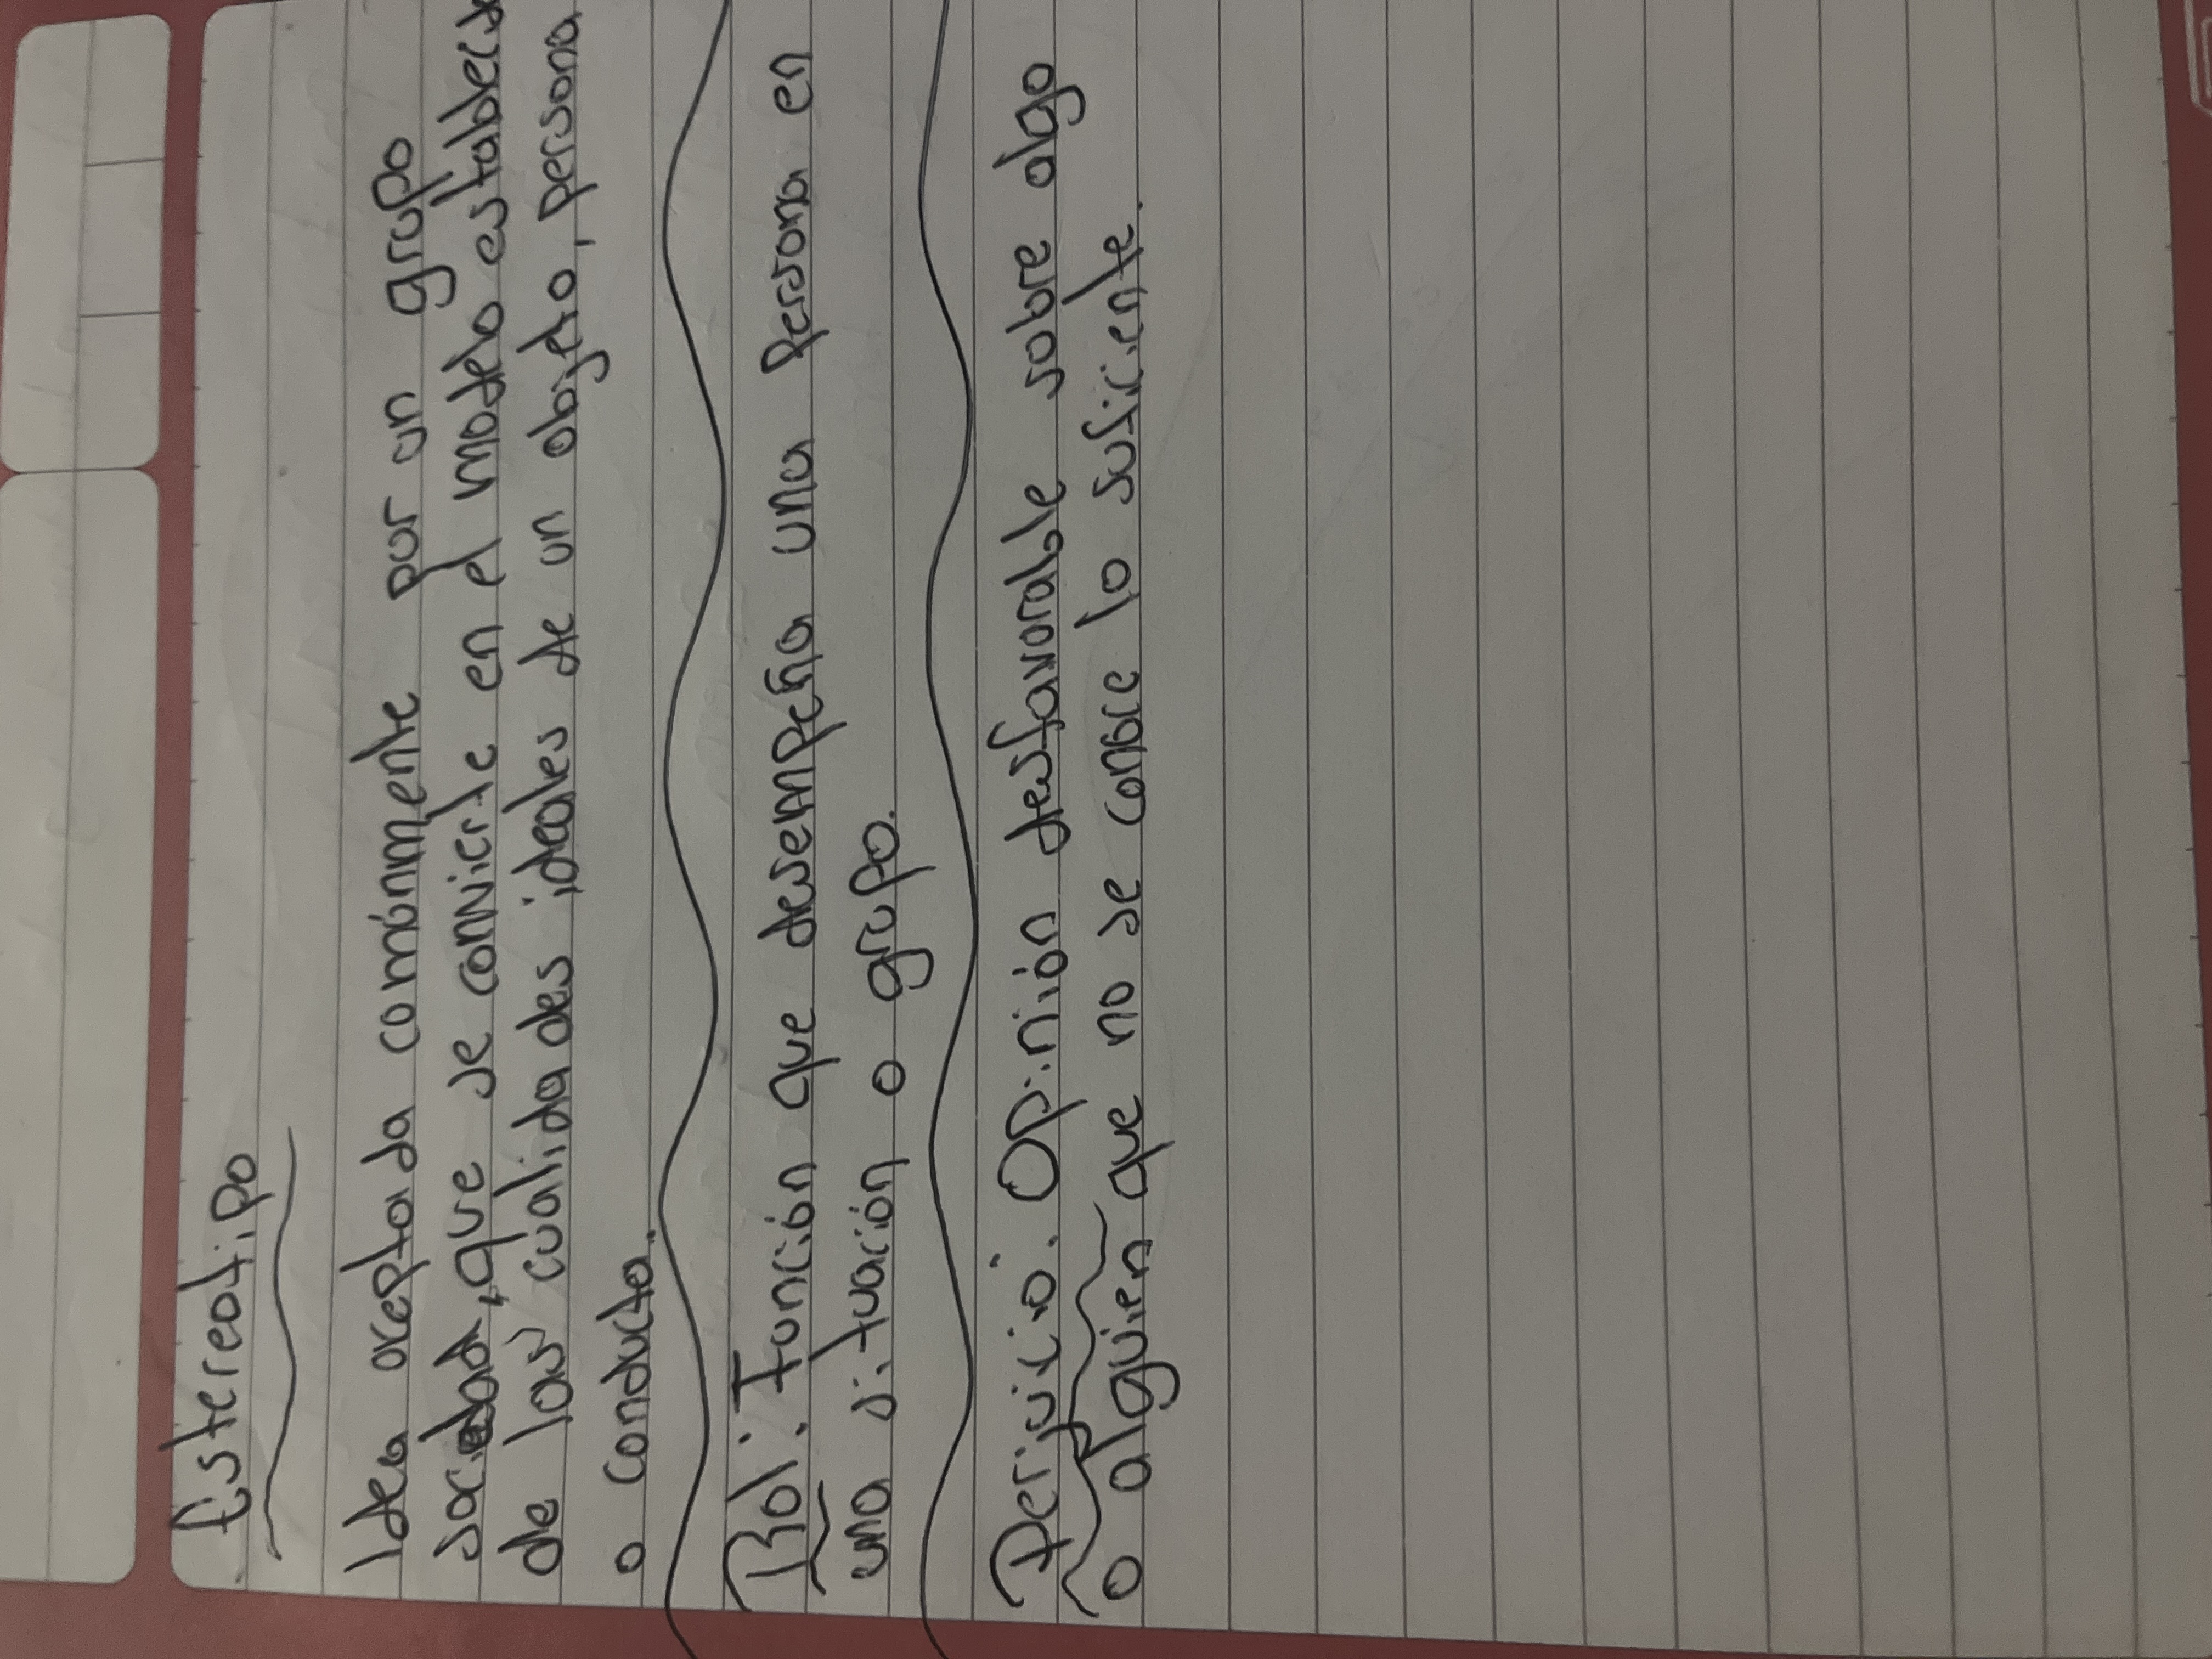 Estereotipo
Idea aceptada comónmente por un grupo
social, que se convierte en el modelo establecido
de las cualidades ideales de un objeto, persona
o conducta.
Rol: Función que desempeña una persona en
una situación o grupo.
Perjuicio: Opinión desfavorable sobre algo
o alguien que no se conoce lo suficiente.